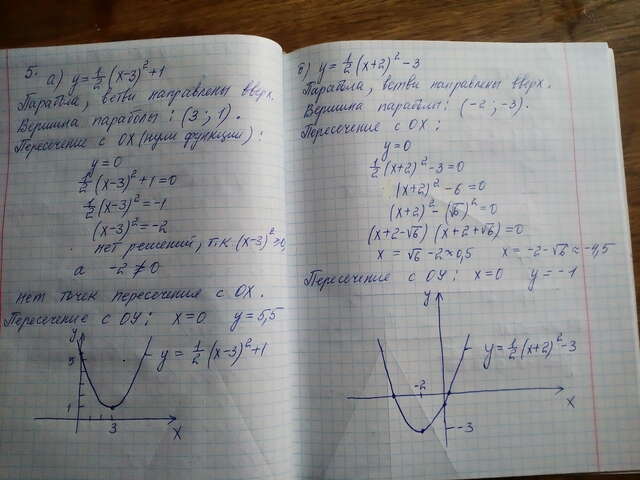 5. а) y = 1/2 (x-3)² + 1
Парабола, ветви направлены вверх.
Вершина параболы: (3; 1).
Пересечение с OX (нули функции):
y = 0
1/2 (x-3)² + 1 = 0
1/2 (x-3)² = -1
(x-3)² = -2
нет решений, т.к. (x-3)² ≥ 0,
а -2 ≠ 0
нет точек пересечения с OX.
Пересечение с OY: x = 0 y = 5,5
y
5
1
3
x
y = 1/2 (x-3)² + 1
б) y = 1/2 (x+2)² - 3
Парабола, ветви направлены вверх.
Вершина параболы: (-2; -3).
Пересечение с OX:
y = 0
1/2 (x+2)² - 3 = 0
(x+2)² - 6 = 0
(x+2)² - (√6)² = 0
(x+2-√6) (x+2+√6) = 0
x = √6 - 2 ≈ 0,5 x = -2-√6 ≈ -4,5
Пересечение с OY: x = 0 y = -1
y
-2
-3
x
y = 1/2 (x+2)² - 3